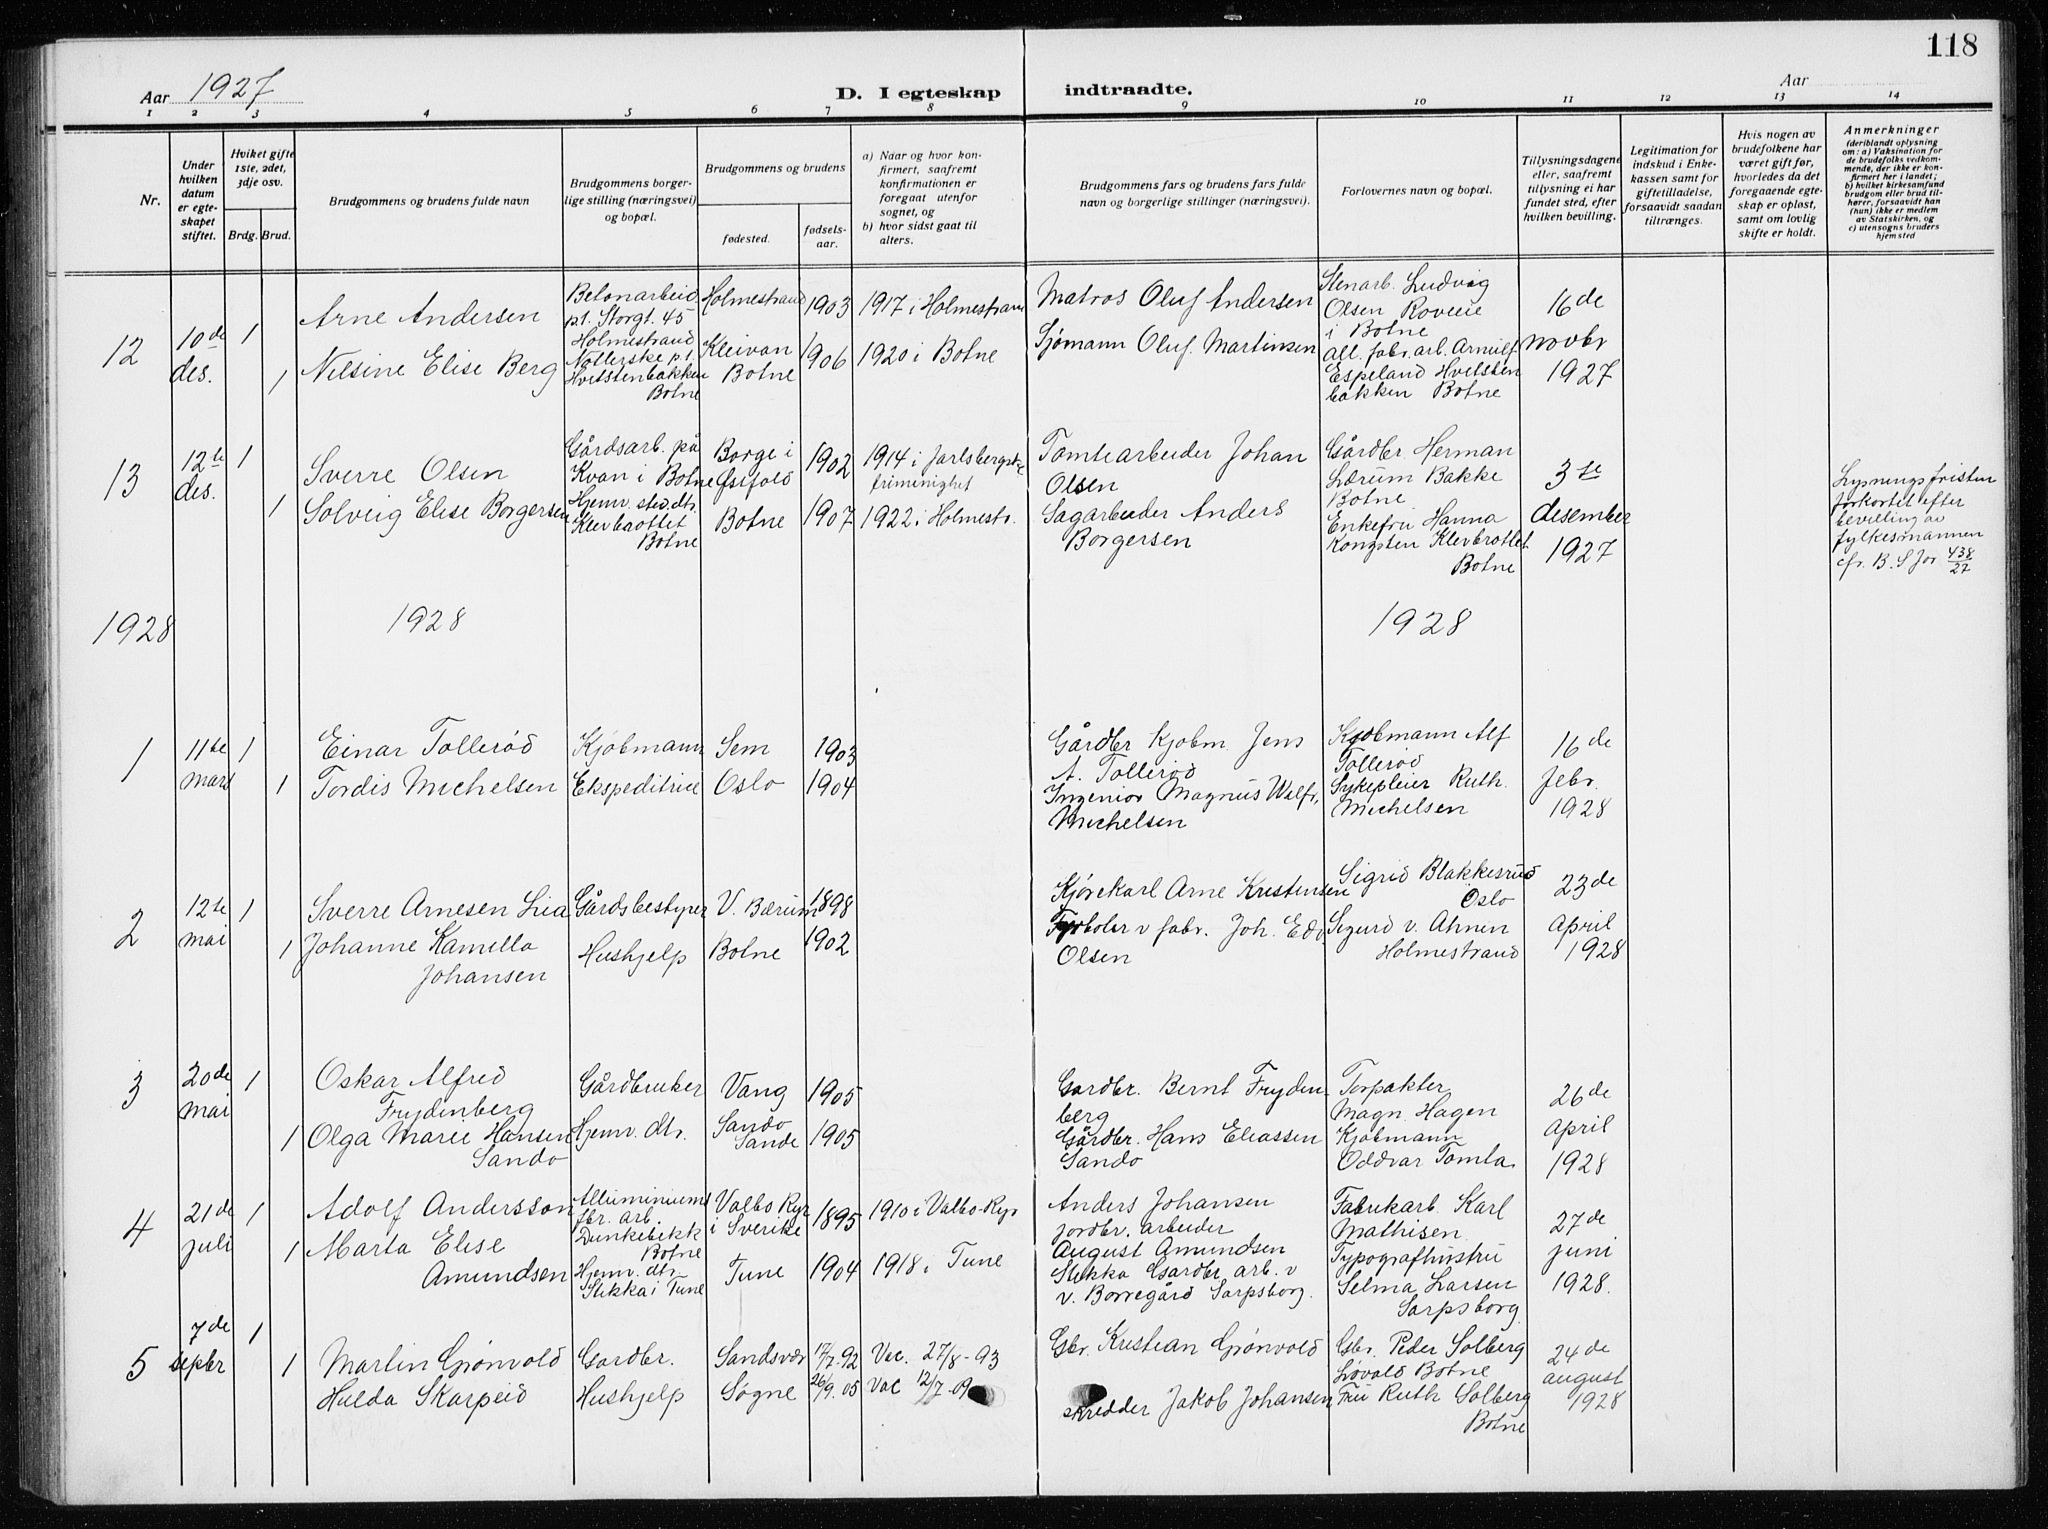 118
Aar 1927
D. I egteskap indtraadte.
Aar
1 2 3 4 5 6 7 8 9 10 11 12 13 14
Nr.
Under
hvilken
datum
er egte-
skapet
stiftet.
Hviket gifte
1ste, 2det,
3dje osv.
Brdg. Brud.
Brudgommens og brudens fulde navn
Brudgommens borger-
lige stilling (næringsvei)
og bopæl.
Brudgommens og brudens
fødested.
fødsels-
aar.
a) Naar og hvor kon-
firmert, saafremt
konfirmationen er
foregaat utenfor
sognet, og
b) hvor sidst gaat til
alters.
Brudgommens fars og brudens fars fulde
navn og borgerlige stillinger (næringsvei).
Forlovernes navn og bopæl.
Tillysningsdagene
eller, saafremt
tillysning ei har
fundet sted, efter
hvilken bevilling.
Legitimation for
indskud i Enke-
kassen samt for
giftetilladelse,
forsaavidt saadan
tiltrænges.
Hvis nogen av
brudefolkene har
været gift før,
hvorledes da det
foregaaende egte-
skap er opløst,
samt om lovlig
skifte er holdt.
Anmerkninger
(deriblandt oplysning
om: a) Vaksination for
de brudefolks vedkom-
mende, der ikke er kon-
firmert her i landet;
b) hvilket kirkesamfund
brudgom eller brud til-
hører, forsaavidt han
(hun) ikke er medlem
av Statskirken, og
c) utensogns bruders
hjemsted
12
10de
des.
1
1
Arne Andersen
Nilsine Elise Berg
Betonarbeid.
p.t. Storgt. 45
Holmestrand
Nøtterske p.t.
Hvitstenbakken
Botne
Holmestrand
Kleivan
Botne
1903
1906
1917 i Holmestrand
1920 i Botne
Matros Oluf Andersen
Sjømann Oluf Martinsen
Stenarb. Ludvig
Olsen Roveie
i Botne
all. fabr. arb. Arnulf
Espeland Hvitsten
bakken Botne
16de
novbr
1927
13
12te
des.
1
1
Sverre Olsen
Solveig Elise Borgersen
Gårdsarb. på
Kvan i Botne
Hjemv. sted. dtr.
Klevbrottet
Botne
Borge i
Østfold
Botne
1902
1907
1914 i Jarlsberg
frimenighet
1922 i Holmestr.
Tomtearbeider Johan
Olsen
Sagarbeider Anders
Borgersen
Gårdbr Herman
Lærum Bakke
Botne
Enkefru Hanna
Kongsten Klevbrottet
Botne
3te
desember
1927
Lysningsfristen
forkortet efter
bevilling av
fylkesmannen
cfr. B. S Jor 438/27
1928 1928 1928
1
11te
mars
1
1
Einar Tollerød
Tordis Michelsen
Kjøbmann
Ekspeditrice
Sem
Oslo
1903
1904
Gårdbr Kjøbm. Jens
A. Tollerød
Ingeniør Magnus Wilh.
Michelsen
Kjøbmann Alf
Tollerød
Sykepleier Ruth
Michelsen
16de
febr.
1928
2
12te
mai
1
1
Sverre Arnesen Lia
Johanne Kamilla
Johansen
Gårdsbestyrer
Hushjelp
V. Bærum
Botne
1898
1902
Kjørekarl Arne Kristensen
Fyrbøter v fabr. Joh. Edv
Olsen
Sigrid Blakkesrud
Oslo
Sigurd v. Ahnen
Holmestrand
23de
April
1928
3
20de
mai
1
1
Oskar Alfred
Frydenberg
Olga Marie Hansen
Sando
Gårdbruker
Hjemv. dtr.
Vang
Sando
Sande
1905
1905
Gardbr. Bernt Fryden
berg
Gårdbr. Hans Eliassen
Sando
Torpakter
Magn. Hagen
Kjøbmann
Oddvar Tomta
26de
April
1928
4
21de
juli
1
1
Adolf Andersson
Marta Elise
Amundsen
Alluminiums
fbr. arb.
Dunkebekk
Botne
Hjemv. dtr.
Stikka i Tune
Valbo Ryr
i Sverike
Tune
1895
1904
1910 i Valbo-Ryr
1918 i Tune
Anders Johansen
jordbr. arbeider
August Amundsen
Stikka Gardbr arb. v
v. Borregård Sarpsborg.
Fabrikarb. Karl
Mathisen
Typografhustru
Selma Larsen
Sarpsborg
27de
juni
1928.
5
7de
septbr
1
1
Martin Grønvold
Hulda Skarpeid
Gardbr.
Hushjelp
Sandsvær
Søgne
17/7-92
26/9. 05
Vac. 27/8-93
Vac 12/7-09
Gbr. Kristian Grønvold
skredder Jakob Johansen
Gbr. Peder Solberg
Løvald Botne
Fru Ruth Solberg
Botne
24de
august
1928